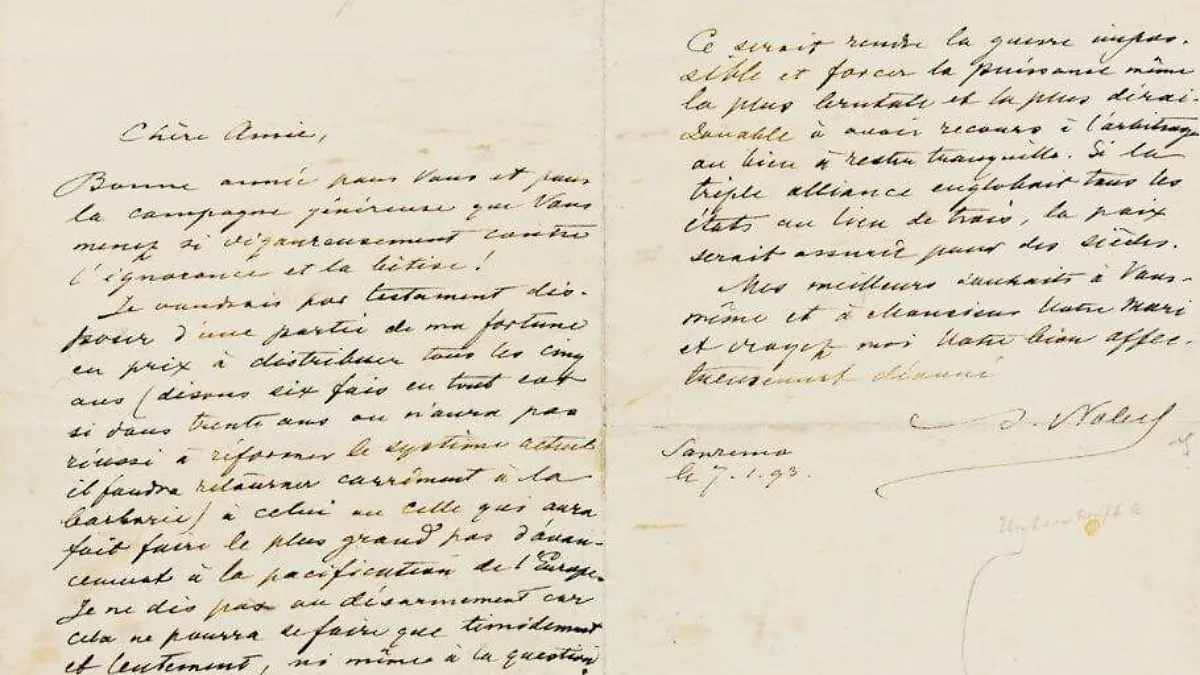 Chère Amie,
Bonne année pour Vous et pour
la campagne généreuse que Vous
menez si vigoureusement contre
l'ignorance et la bêtise!
Je voudrais par testament dis-
poser d'une partie de ma fortune
en prix à distribuer tous les cinq
ans (disons six fois en tout car
si dans trente ans on n'aura pas
réussi à réformer le système actuel
il faudra retourner carrément à la
barbarie) à celui ou celle qui aura
fait faire le plus grand pas d'avan-
cement à la pacification de l'Europe.
Je ne dis pas au désarmement car
cela ne pourra se faire que timidement
et lentement, ni même à la question
Ce serait rendre la guerre impos-
sible et forcer la puissance même
la plus brutale et la plus dérai-
sonable à avoir recours à l'arbitrage
ou bien à rester tranquille. Si la
triple alliance englobait tous les
états au lieu de trois, la paix
serait assurée pour des siècles.
Mes meilleurs souhaits à Vous-
même et à Monsieur Votre Mari
et croyez moi Votre bien affec-
tueusement dévoué
A. Nobel
Sanremo
le 7.1.93.